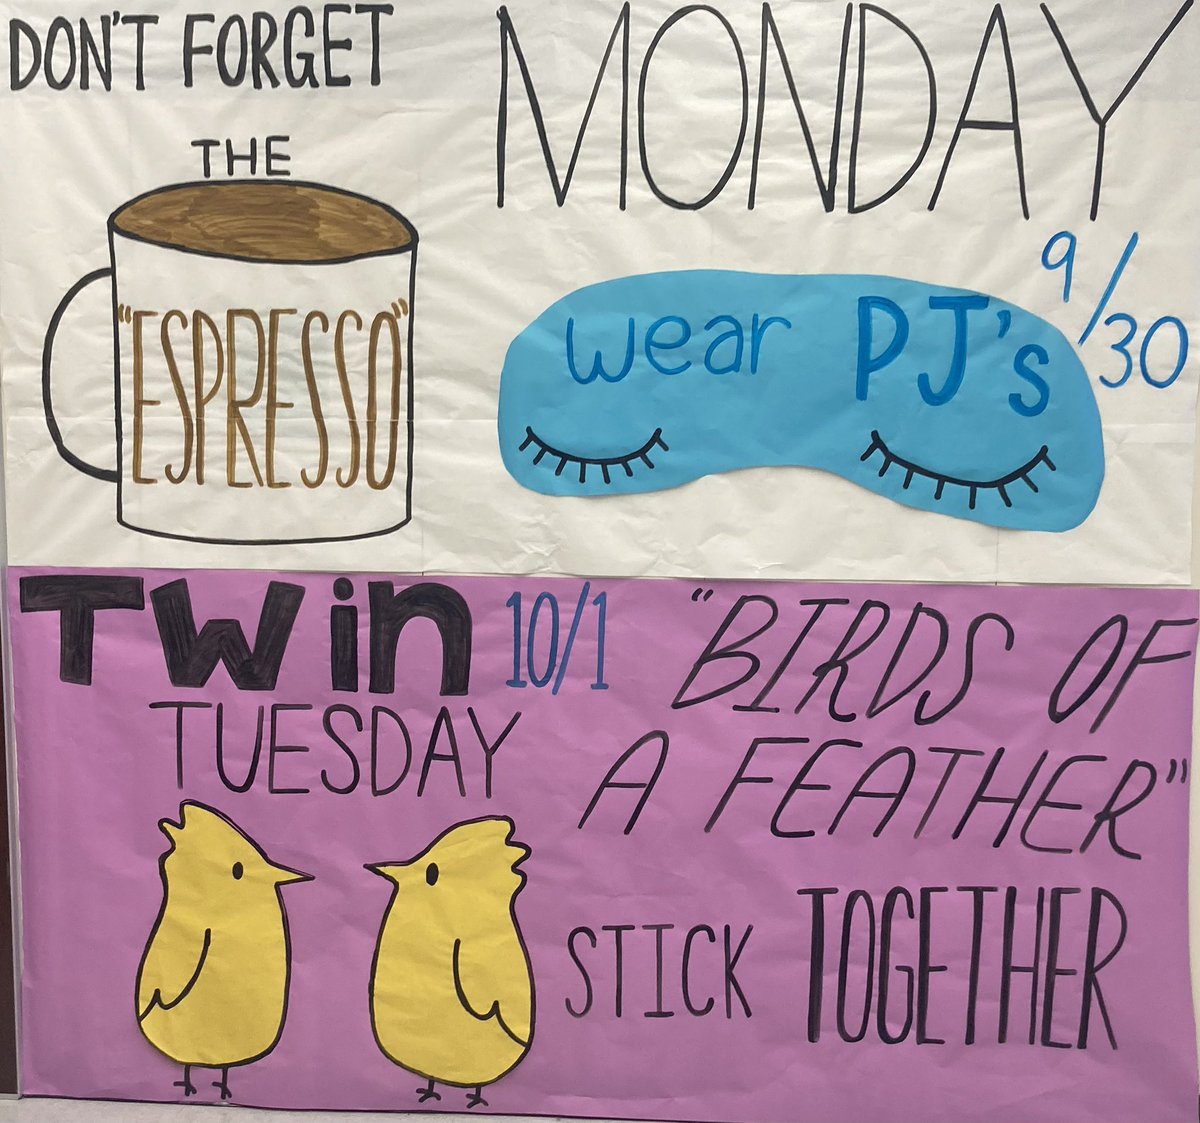 DON'T FORGET
THE
"ESPRESSO"
MONDAY
9/30
wear PJ's
TWiN 10/1
TUESDAY
"BIRDS OF
A FEATHER"
STICK TOGETHER